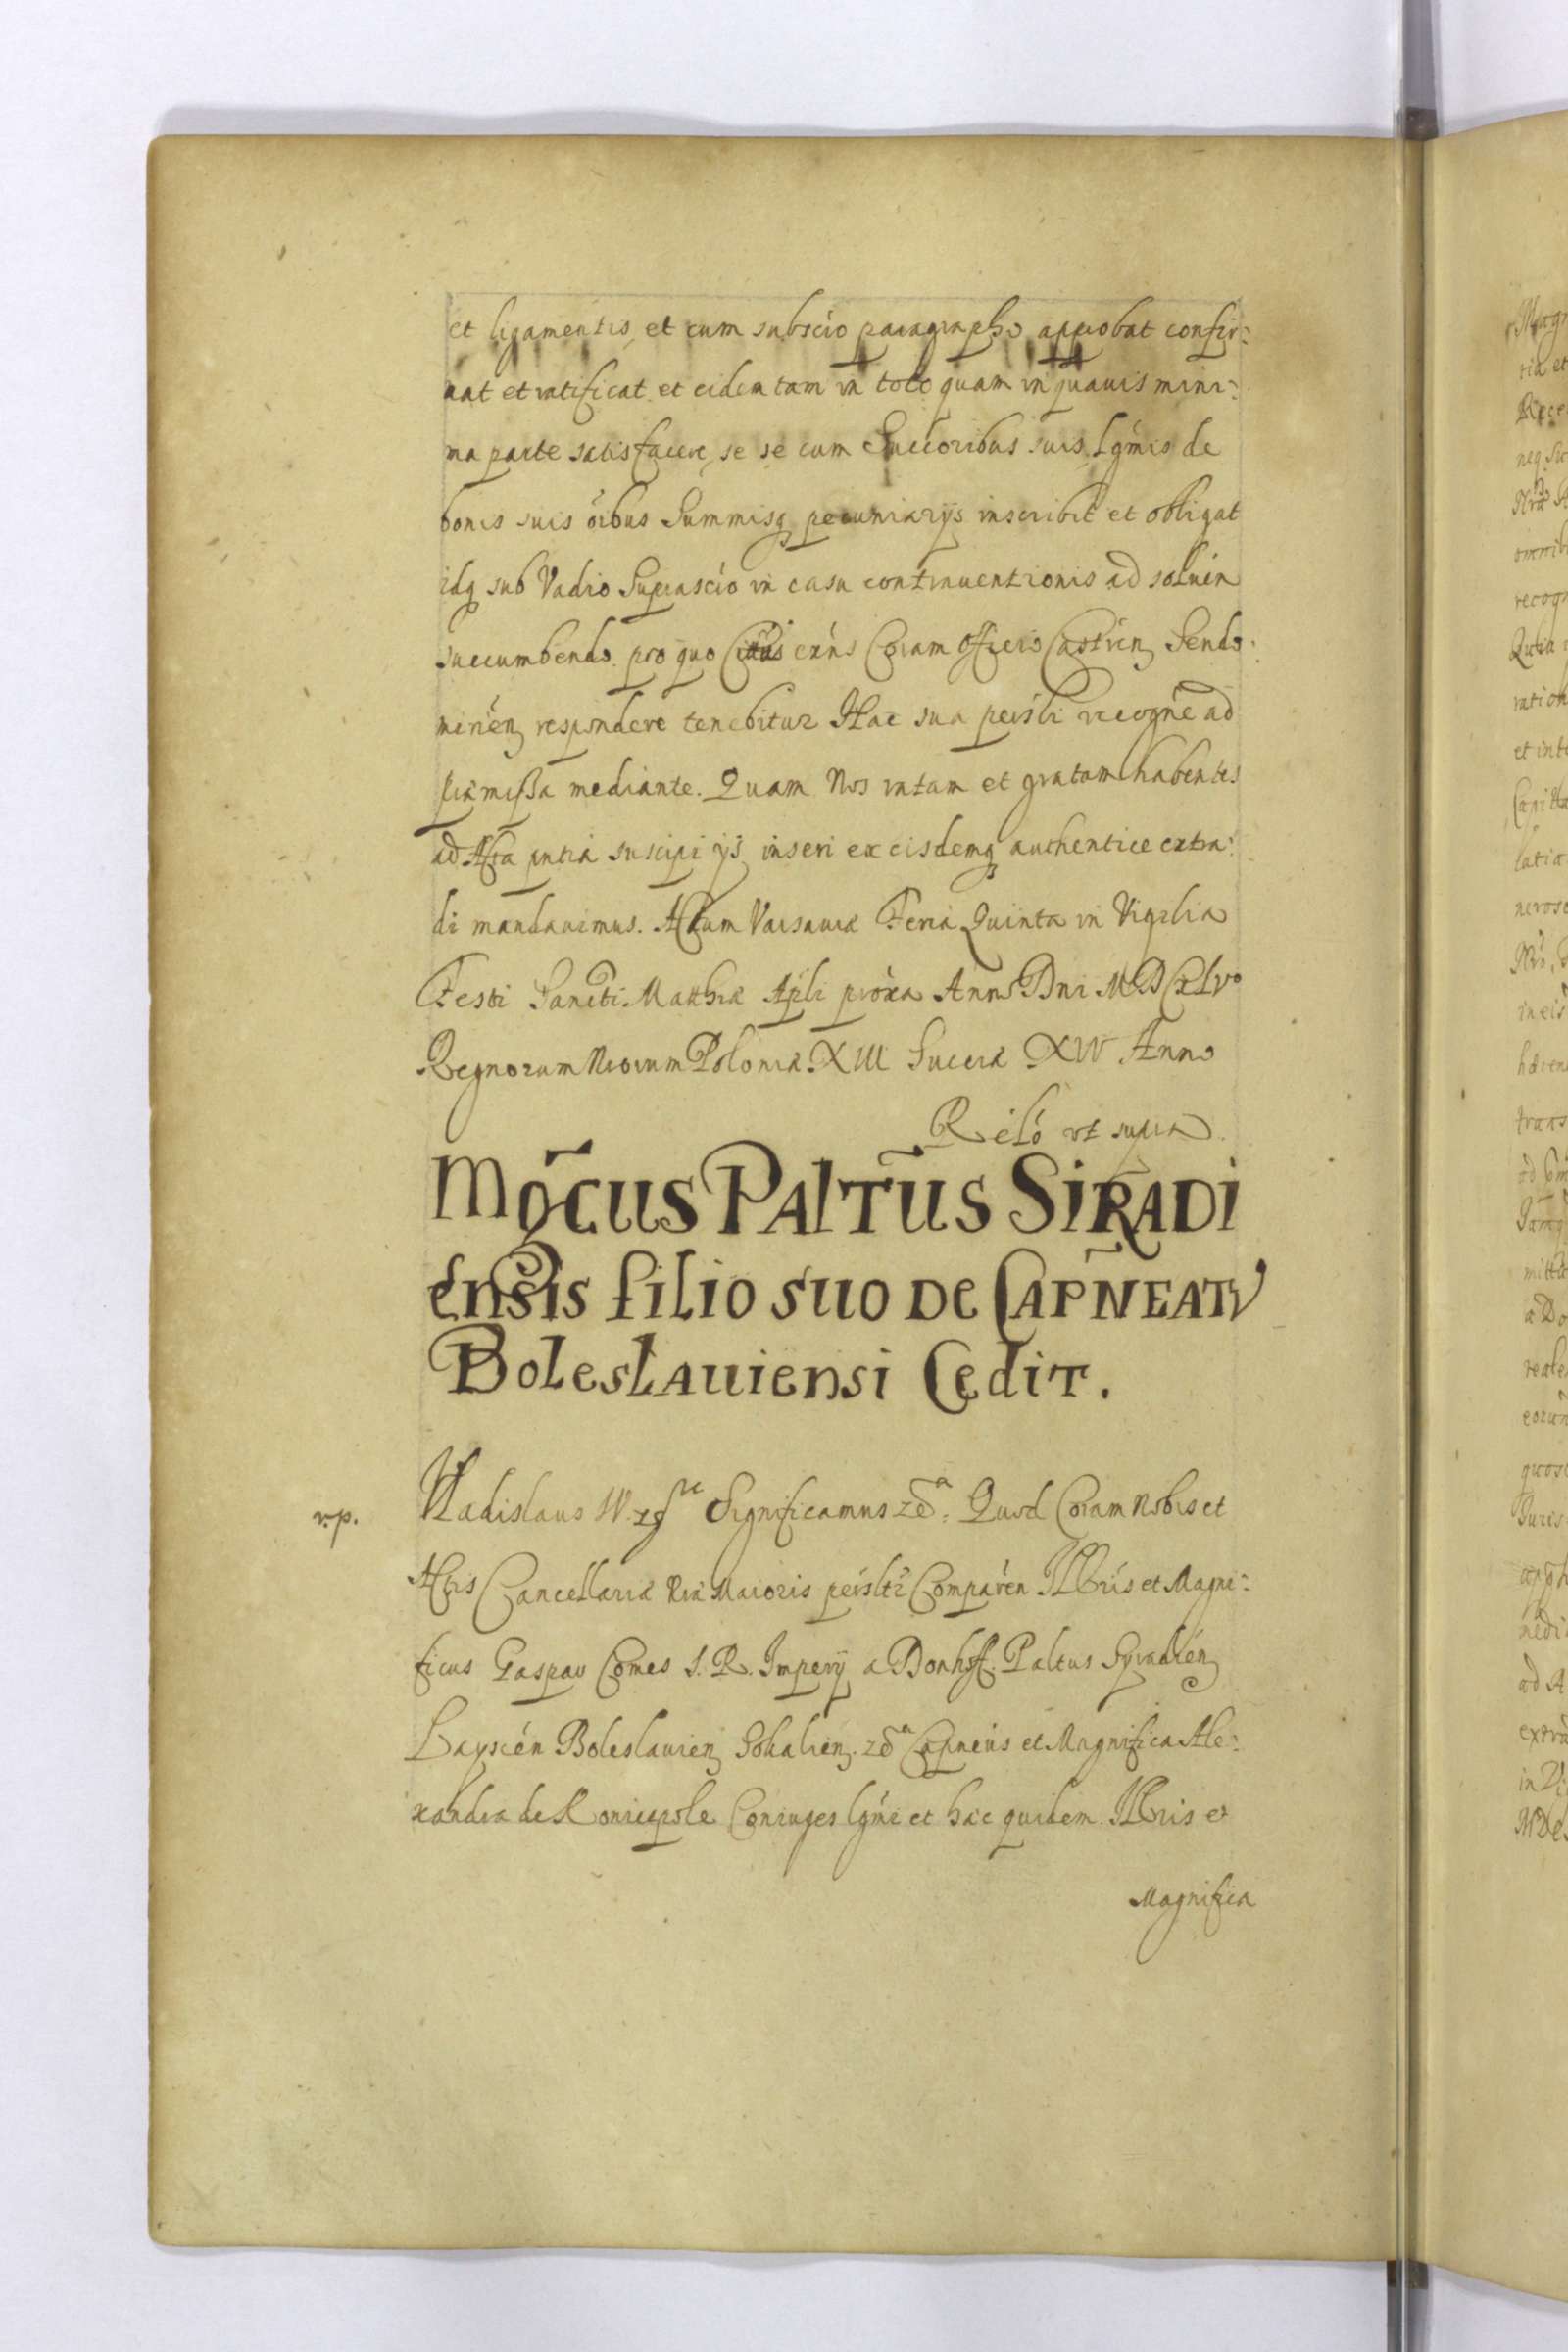 et ligamentis, et cum subscio paragrapho approbat confir:
mat et ratificat et eidem tam in toto quam in quauis mini:
ma parte satisfacere, se se cum Succoribus suis Lgmis de
bonis suis oibus Summisq pecuniarijs inscribit et obligat
idq sub Vadio Suprascio in casu contrauentionis ad soluen
succumbendo pro quo Citatus exns Coram Officio Castren Sendo:
mirien respondere tenebitur Hac sua persli recogne ad
præmissa mediante. Quam Nos ratam et gratam habentes
ad Acta pntia suscipi ijs inseri ex eisdemq authentice extra:
di mandauimus. Actum Varsauiæ Feria Quinta in Vigilia
Festi Sancti Matthiæ Apli proxa Anno Dni MDCXLVº
Regnorum Nrorum Poloniæ XIII Sueciæ XIV Anno
Relo ut supra
Mgcus Paltus Siradi
ensis filio suo de Capneatu
Boleslauiensi Cedit.
r.p.
Vladislaus IV. Significamus Quod Coram Nobis et
Actis Cancellariæ Rni Maioris perslr Comparen Illris et Magni:
ficus Gaspar Comes S. R. Imperij a Donhoff. Paltus Syradien
Boleslauien Sokalien. Capneus et Magnifica Ale:
xandra de Koniecpole Coniuges lgmi et hæc quidem Illris et
Magnifica